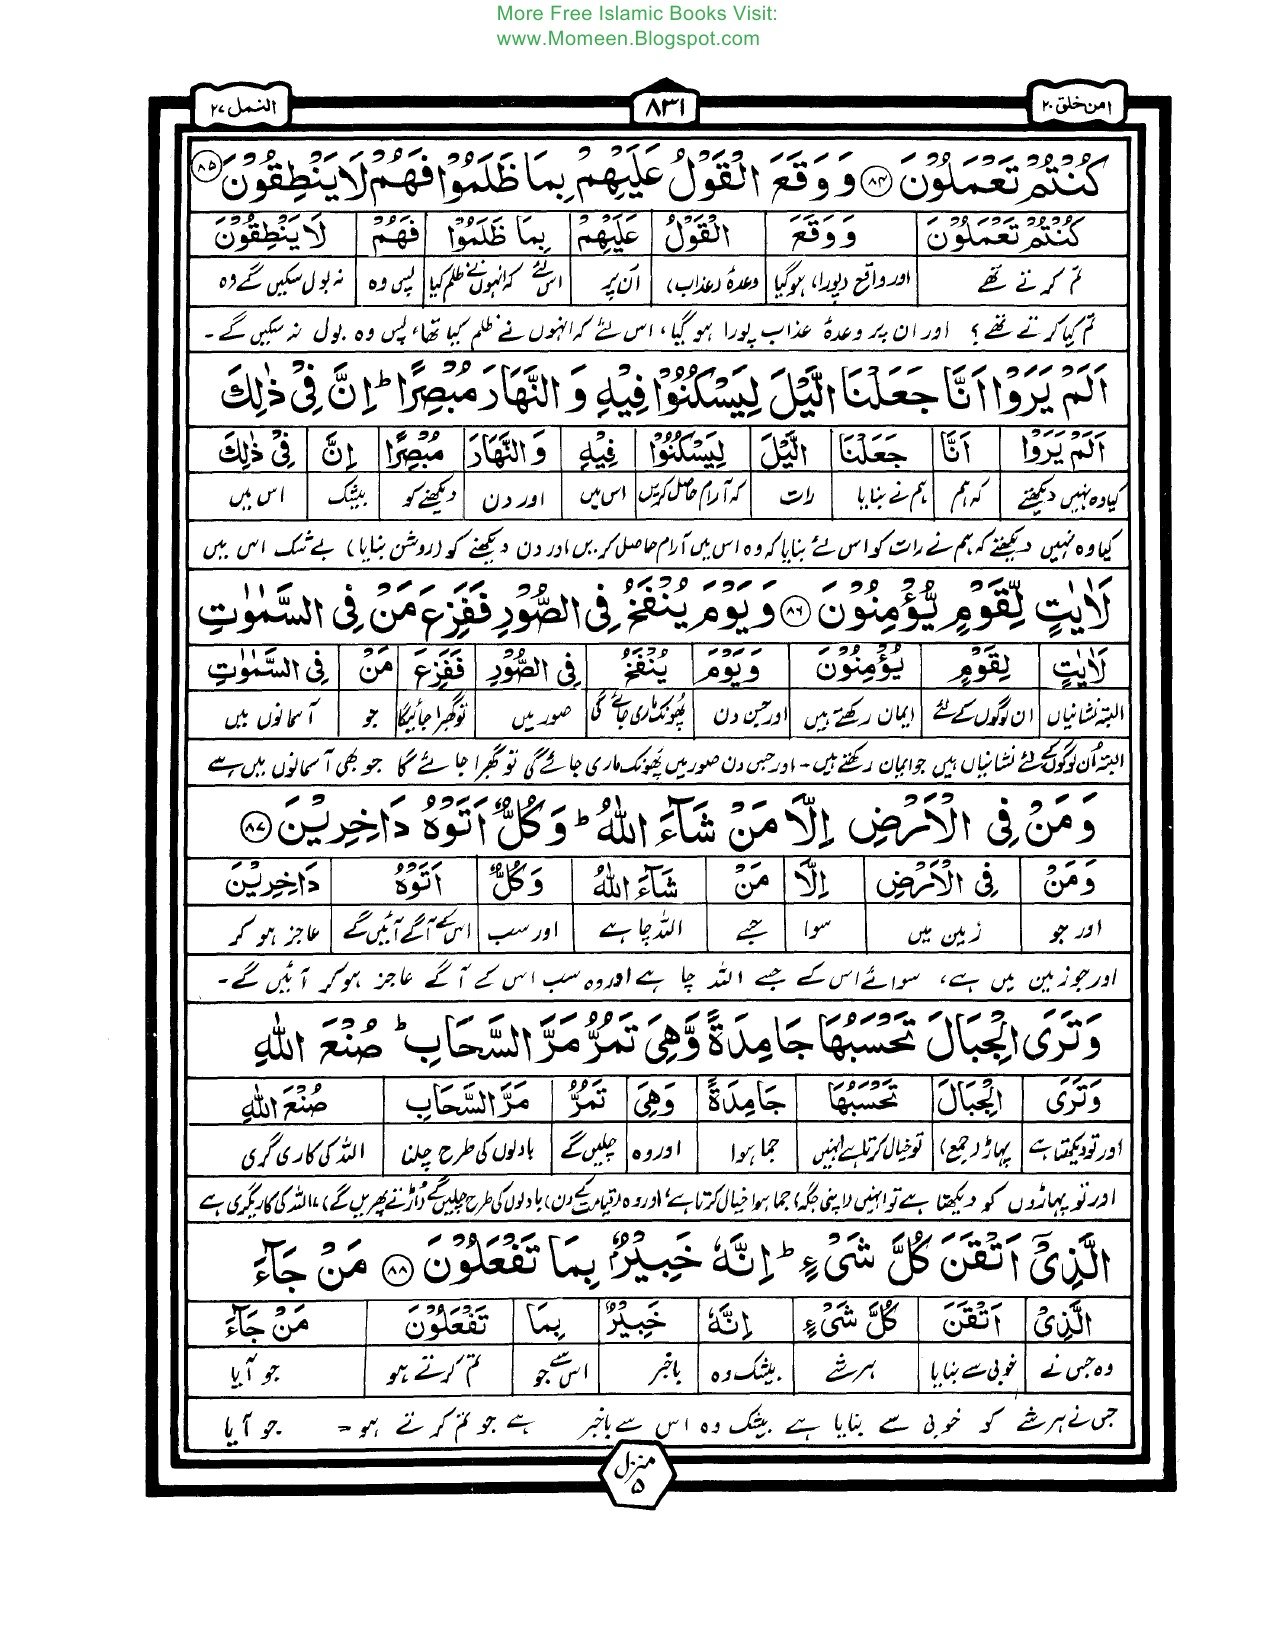 More Free Islamic Books Visit:
www.Momeen.Blogspot.com
امن خلق ۲۰
۸۳۱
النمل ۲۷
كُنْتُمْ تَعْمَلُوْنَ ﴿۸۴﴾ وَ وَقَعَ الْقَوْلُ عَلَيْهِمْ بِمَا ظَلَمُوْا فَهُمْ لَا يَنْطِقُوْنَ ﴿۸۵﴾
كُنْتُمْ تَعْمَلُوْنَ وَ وَقَعَ الْقَوْلُ عَلَيْهِمْ بِمَا ظَلَمُوْا فَهُمْ لَا يَنْطِقُوْنَ
تم کرتے تھے اور واقع (پورا) ہوگیا وعدۂ (عذاب) اُن پر اس لئے کہ انہوں نے ظلم کیا پس وہ نہ بول سکیں گے وہ
تم کیا کرتے تھے؟ اور ان پر وعدۂ عذاب پورا ہو گیا، اس لئے کہ انہوں نے ظلم کیا تھا، پس وہ بول نہ سکیں گے۔
اَلَمْ يَرَوْا اَنَّا جَعَلْنَا الَّيْلَ لِيَسْكُنُوْا فِيْهِ وَ النَّهَارَ مُبْصِرًا ؕ اِنَّ فِيْ ذٰلِكَ
اَلَمْ يَرَوْا اَنَّا جَعَلْنَا الَّيْلَ لِيَسْكُنُوْا فِيْهِ وَ النَّهَارَ مُبْصِرًا اِنَّ فِيْ ذٰلِكَ
کیا وہ نہیں دیکھتے کہ ہم ہم نے بنایا رات کہ آرام حاصل کریں اس میں اور دن دیکھنے کو بیشک اس میں
کیا وہ نہیں دیکھتے کہ ہم نے رات کو اس لئے بنایا کہ وہ اس میں آرام حاصل کریں اور دن دیکھنے کو (روشن بنایا) بے شک اس میں
لَاٰيٰتٍ لِّقَوْمٍ يُّؤْمِنُوْنَ ﴿۸۶﴾ وَ يَوْمَ يُنْفَخُ فِي الصُّوْرِ فَفَزِعَ مَنْ فِي السَّمٰوٰتِ
لَاٰيٰتٍ لِقَوْمٍ يُؤْمِنُوْنَ وَ يَوْمَ يُنْفَخُ فِي الصُّوْرِ فَفَزِعَ مَنْ فِي السَّمٰوٰتِ
البتہ نشانیاں ان لوگوں کے لئے ایمان رکھتے ہیں اور جس دن پھونک ماری جائے گی صور میں تو گھبرا جائیگا جو آسمانوں میں
البتہ اُن لوگوں کے لئے نشانیاں ہیں جو ایمان رکھتے ہیں۔ اور جس دن صور میں پھونک ماری جائے گی تو گھبرا جائے گا جو بھی آسمانوں میں ہے
وَ مَنْ فِي الْاَرْضِ اِلَّا مَنْ شَآءَ اللّٰهُ ؕ وَ كُلٌّ اَتَوْهُ دَاخِرِيْنَ ﴿۸۷﴾
وَ مَنْ فِي الْاَرْضِ اِلَّا مَنْ شَآءَ اللّٰهُ وَ كُلٌّ اَتَوْهُ دَاخِرِيْنَ
اور جو زمین میں سوا جسے اللہ چاہے اور سب اس کے آگے آئیں گے عاجز ہو کر
اور جو زمین میں ہے، سوائے اس کے جسے اللہ چاہے اور وہ سب اس کے آگے عاجز ہو کر آئیں گے۔
وَ تَرَى الْجِبَالَ تَحْسَبُهَا جَامِدَةً وَّ هِيَ تَمُرُّ مَرَّ السَّحَابِ ؕ صُنْعَ اللّٰهِ
وَ تَرَى الْجِبَالَ تَحْسَبُهَا جَامِدَةً وَ هِيَ تَمُرُّ مَرَّ السَّحَابِ صُنْعَ اللّٰهِ
اور تو دیکھتا ہے پہاڑ (جمع) تو خیال کرتا ہے انہیں جما ہوا اور وہ چلیں گے بادلوں کی طرح چلنا اللہ کی کاری گری
اور تو پہاڑوں کو دیکھتا ہے تو انہیں (اپنی جگہ) جما ہوا خیال کرتا ہے، اور وہ (قیامت کے دن) بادلوں کی طرح چلیں گے (اڑتے پھریں گے)، اللہ کی کاریگری ہے
الَّذِيْۤ اَتْقَنَ كُلَّ شَيْءٍ ؕ اِنَّهٗ خَبِيْرٌۢ بِمَا تَفْعَلُوْنَ ﴿۸۸﴾ مَنْ جَآءَ
الَّذِيْۤ اَتْقَنَ كُلَّ شَيْءٍ اِنَّهٗ خَبِيْرٌ بِمَا تَفْعَلُوْنَ مَنْ جَآءَ
وہ جس نے خوبی سے بنایا ہر شے بیشک وہ باخبر اس سے جو تم کرتے ہو جو آیا
جس نے ہر شے کو خوبی سے بنایا ہے بیشک وہ اس سے باخبر ہے جو تم کرتے ہو۔ جو آیا
منزل ۵